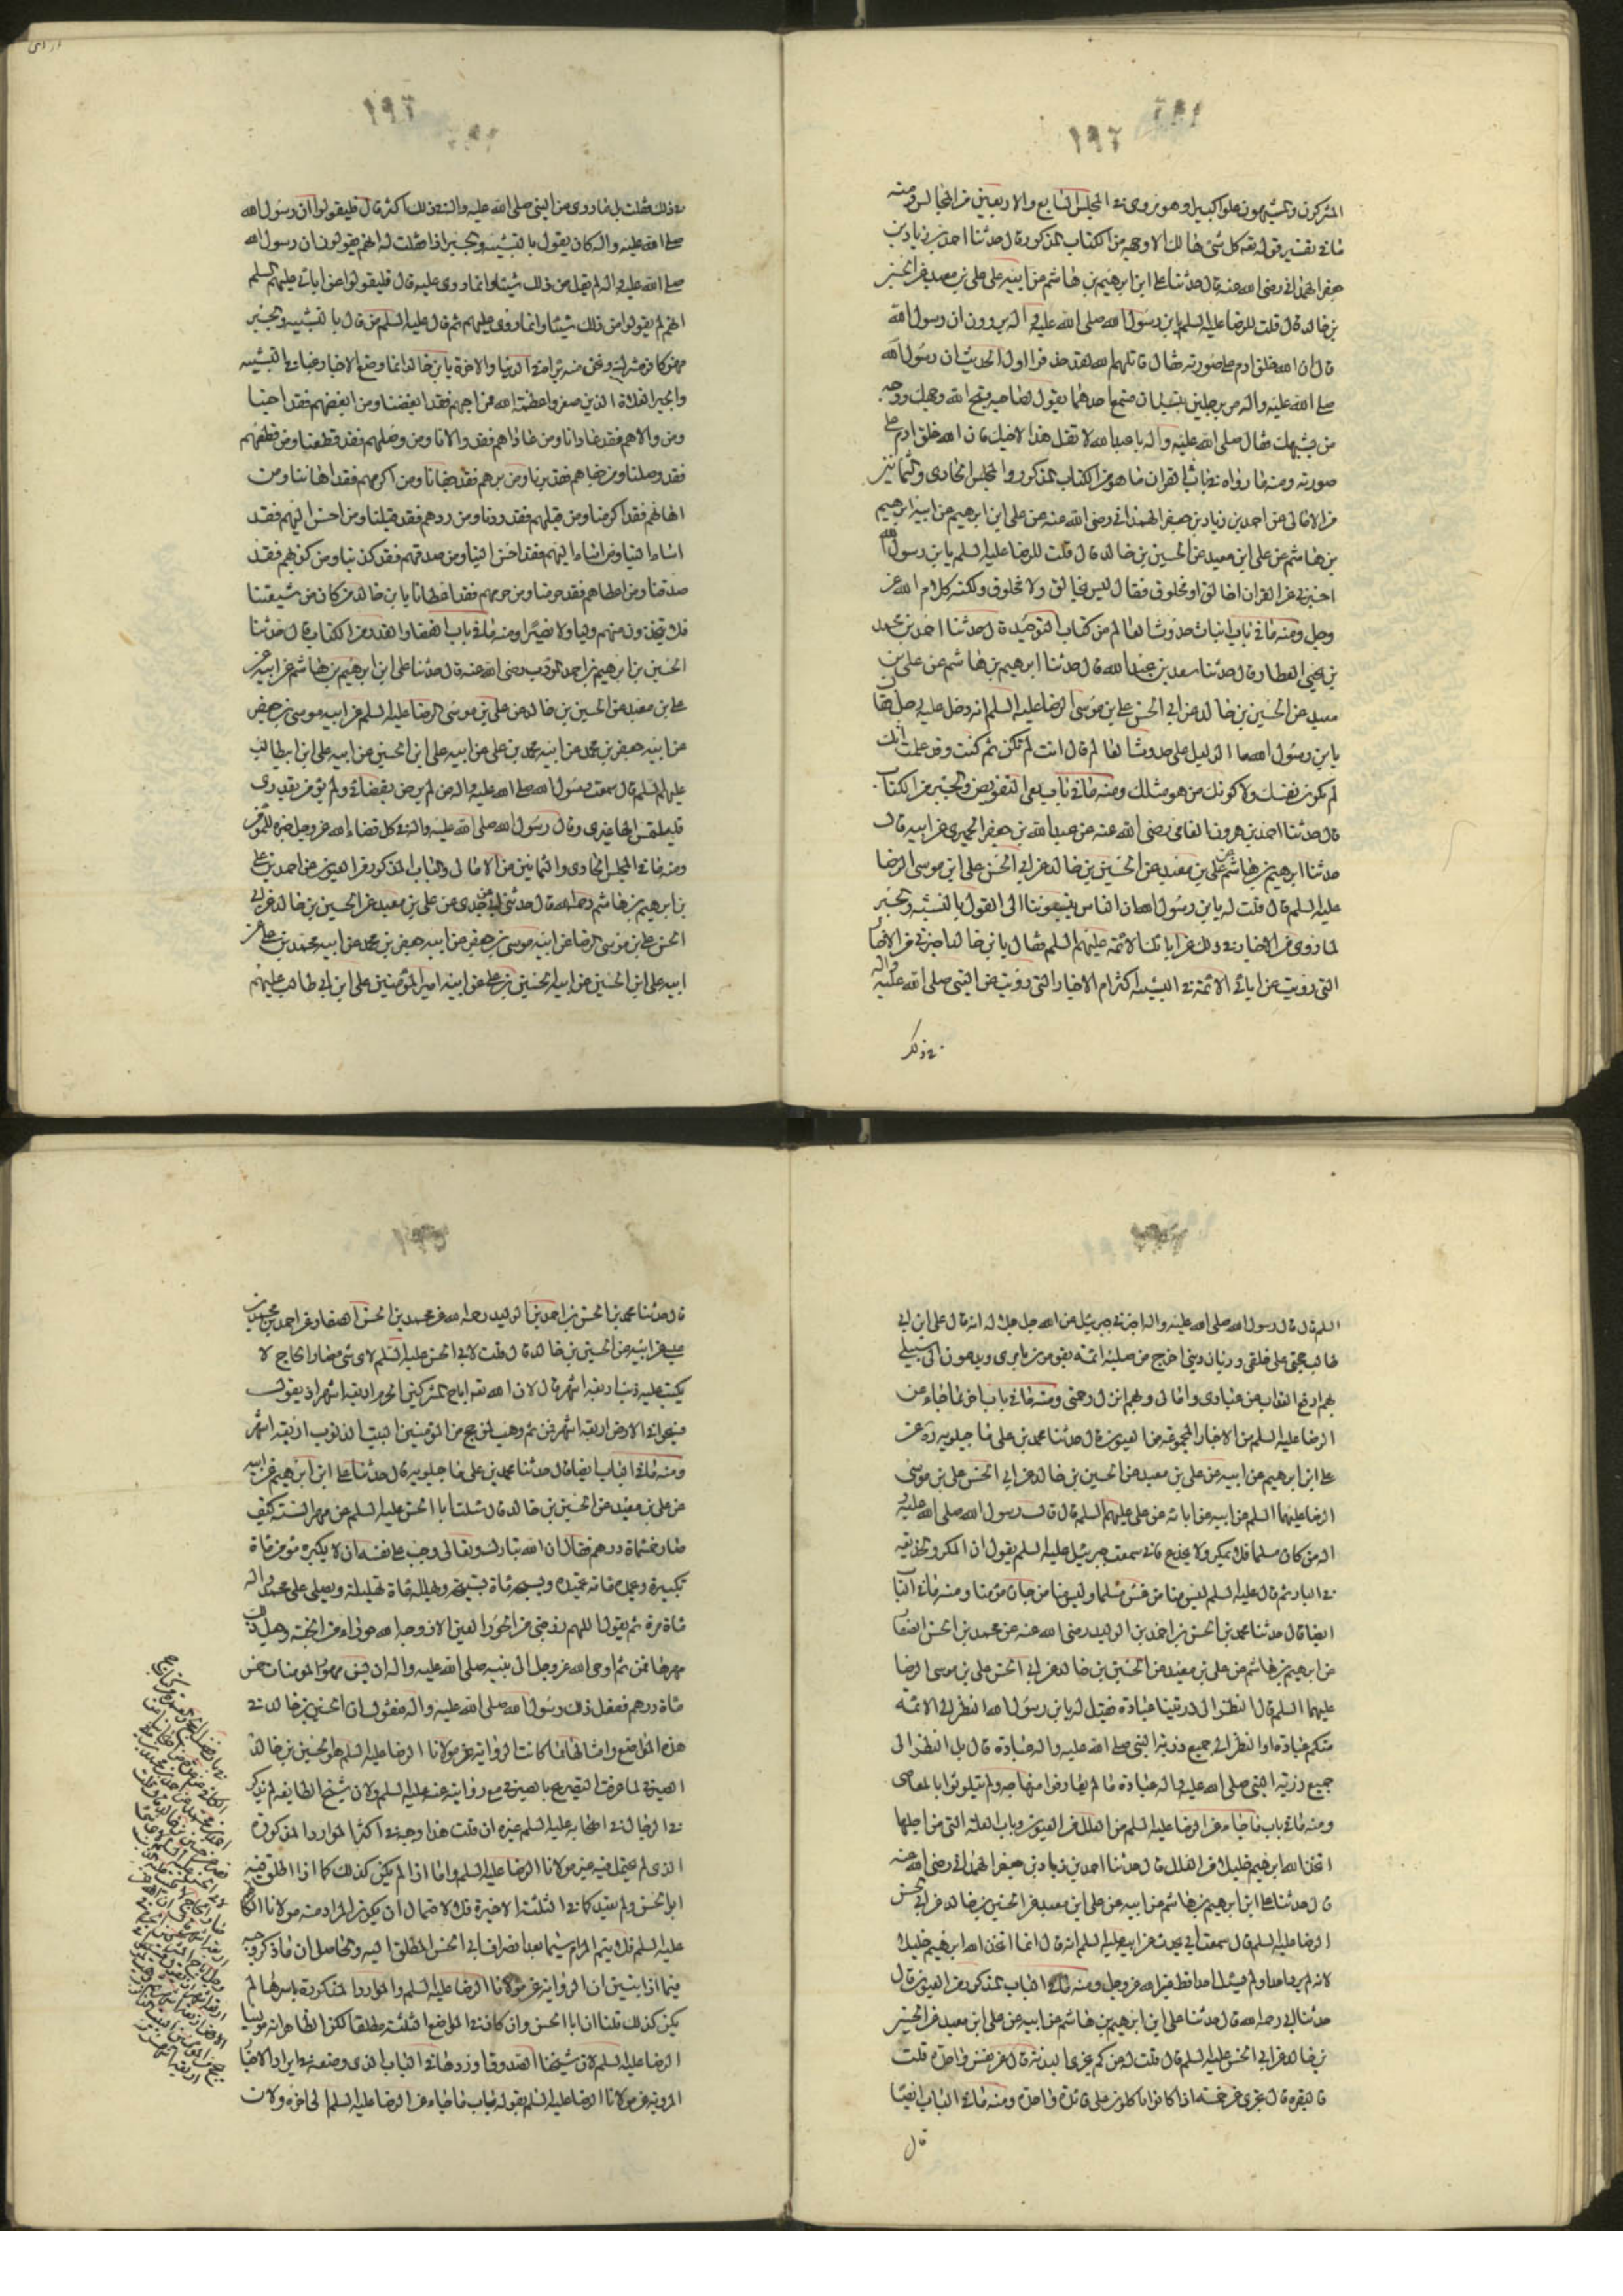 المشركون والمشبهون علوا كبيرا وهو مروى في المجلس السابع والاربعين من المجالس ومنه
ما في تفسير قوله تعه كل شئ هالك الا وجهه من الكتاب المذكور قال حدثنا احمد بن زياد بن
جعفر الهمداني رضى الله عنه قال حدثنا على ابن ابرهيم بن هاشم عن ابيه على بن معبد عن الحسين
بن خالد قال قلت للرضا عليه السلم يابن رسول الله صلى الله عليه واله يروون ان رسول الله
قال ان الله خلق ادم على صورته فقال قاتلهم الله لقد حذفوا اول الحديث ان رسول الله
صلى الله عليه واله مر برجلين يتسابان فسمع احدهما يقول لصاحبه قبح الله وجهك ووجه
من يشبهك فقال صلى الله عليه واله يا عبد الله لا تقل هذا لاخيك فان الله خلق ادم على
صورته ومنه ما رواه في باب القران ما هو من الكتاب المذكور والمجلس الحادى والثمانين
من الامالى عن احمد بن زياد بن جعفر الهمداني رضى الله عنه عن على ابن ابرهيم عن ابيه ابرهيم
بن هاشم عن على ابن معبد عن الحسين بن خالد قال قلت للرضا عليه السلم يابن رسول الله
اخبرنى عن القران اخالق او مخلوق فقال ليس بخالق ولا مخلوق ولكنه كلام الله عز
وجل ومنه ما في باب اثبات حدوث العالم من كتاب التوحيد قال حدثنا احمد بن محمد
بن يحيى العطار قال حدثنا سعد بن عبد الله قال حدثنا ابرهيم بن هاشم عن على بن
معبد عن الحسين بن خالد عن ابي الحسن على بن موسى الرضا عليه السلم انه دخل عليه رجل فقال
يابن رسول الله ما الدليل على حدوث العالم قال انت لم تكن ثم كنت وقد علمت انك
لم تكون نفسك ولا كونك من هو مثلك ومنه ما في باب نفى التفويض والجبر من الكتاب
قال حدثنا احمد بن هرون الفامى رضى الله عنه عن عبد الله بن جعفر الحميرى عن ابيه قال
حدثنا ابرهيم بن هاشم عن على بن معبد عن الحسين بن خالد عن ابي الحسن على ابن موسى الرضا
عليه السلم قال قلت له يابن رسول الله ان الناس ينسبوننا الى القول بالتشبيه والجبر
لما روى من الاخبار في ذلك عن ابائك الائمة عليهم السلم فقال يا بن خالد اخبرنى عن الاخبار
التى رويت عن ابائى الائمة في التشبيه اكثر ام الاخبار التى رويت عن النبى صلى الله عليه واله
في ذلك
في ذلك فقلت بل ما روى عن النبى صلى الله عليه واله في ذلك اكثر قال فليقولوا ان رسول الله
صلى الله عليه واله كان يقول بالتشبيه والجبر اذا فقلت له انهم يقولون ان رسول الله
صلى الله عليه واله لم يقل من ذلك شيئا وانما روى عليه قال فليقولوا في ابائى عليهم السلم
انهم لم يقولوا من ذلك شيئا وانما روى عليهم ثم قال عليه السلم من قال بالتشبيه والجبر
فهو كافر مشرك ونحن منه براء في الدنيا والاخرة يابن خالد انما وضع الاخبار عنا في التشبيه
والجبر الغلاة الذين صغروا عظمة الله فمن احبهم فقد ابغضنا ومن ابغضهم فقد احبنا
ومن والاهم فقد عادانا ومن عاداهم فقد والانا ومن وصلهم فقد قطعنا ومن قطعهم
فقد وصلنا ومن جفاهم فقد برنا ومن برهم فقد جفانا ومن اكرمهم فقد اهاننا ومن
اهانهم فقد اكرمنا ومن قبلهم فقد ردنا ومن ردهم فقد قبلنا ومن احسن اليهم فقد
اساء الينا ومن اساء اليهم فقد احسن الينا ومن صدقهم فقد كذبنا ومن كذبهم فقد
صدقنا ومن اعطاهم فقد حرمنا ومن حرمهم فقد اعطانا يا بن خالد من كان من شيعتنا
فلا يتخذن منهم وليا ولا نصيرا ومنه ما في باب القضاء والقدر من الكتاب قال حدثنا
الحسين بن ابرهيم بن احمد المودب رضى الله عنه قال حدثنا على ابن ابرهيم بن هاشم عن ابيه عن
على بن معبد عن الحسين بن خالد عن على بن موسى الرضا عليه السلم عن ابيه موسى بن جعفر
عن ابيه جعفر بن محمد عن ابيه محمد بن على عن ابيه على ابن الحسين عن ابيه على ابن ابيطالب
عليهم السلم قال سمعت رسول الله صلى الله عليه واله من لم يرض بقضائى ولم يؤمن بقدرى
فليلتمس الها غيرى وقال رسول الله صلى الله عليه واله في كل قضاء الله عز وجل خيرة للمؤمن
ومنه ما في المجلس الحادى والثمانين من الامالى والباب المذكور من العيون عن احمد بن على
بن ابرهيم بن هاشم رحمه الله قال حدثنى ابى عن جدى عن على بن معبد عن الحسين بن خالد عن ابي
الحسن على بن موسى الرضا عن ابيه موسى بن جعفر عن ابيه جعفر بن محمد عن ابيه محمد بن على عن
ابيه على ابن الحسين عن ابيه الحسين بن على عن ابيه امير المؤمنين على ابن ابي طالب عليهم
السلم قال قال رسول الله صلى الله عليه واله اخبرنى جبرئيل عن الله جل جلاله انه قال على ابن ابي
طالب حجتى على خلقى وديان دينى اخرج من صلبه ائمة يقومون بامرى ويدعون الى سبيلى
بهم ادفع العذاب عن عبادى وامائى وبهم انزل رحمتى ومنه ما في باب اخر فيما جاء عن
الرضا عليه السلم من الاخبار المجموعة من العيون قال حدثنا محمد بن على ماجيلويه ره عن
على ابن ابرهيم عن ابيه عن على بن معبد عن الحسين بن خالد عن ابي الحسن على بن موسى
الرضا عليهما السلم عن ابيه عن ابائه عن على عليهم السلم قال قال رسول الله صلى الله عليه
اله من كان مسلما فلا يمكر ولا يخدع فانى سمعت جبرئيل عليه السلم يقول ان المكر والخديعة
في النار ثم قال عليه السلم ليس منا من غش مسلما وليس منا من خان مؤمنا ومنه ما في الباب
ايضا قال حدثنا محمد بن الحسن بن احمد بن الوليد رضى الله عنه عن محمد بن الحسن الصفار
عن ابرهيم بن هاشم عن على بن معبد عن الحسين بن خالد عن ابي الحسن على بن موسى الرضا
عليهما السلم قال النظر الى ذريتنا عبادة فقيل له يابن رسول الله النظر الى الائمة
منكم عبادة او النظر الى جميع ذرية النبى صلى الله عليه واله عبادة قال بل النظر الى
جميع ذرية النبى صلى الله عليه واله عبادة ما لم يفارقوا منهاجه ولم يتلوثوا بالمعاصى
ومنه ما في باب ما جاء عن الرضا عليه السلم من العلل من العيون وباب العلة التى من اجلها
اتخذ الله ابرهيم خليلا من العلل قال حدثنا احمد بن زياد بن جعفر الهمداني رضى الله عنه
قال حدثنا على ابن ابرهيم بن هاشم عن ابيه عن على ابن معبد عن الحسين بن خالد عن ابي الحسن
الرضا عليه السلم قال سمعت ابي يحدث عن ابيه عليه السلم انه قال انما اتخذ الله ابرهيم خليلا
لانه لم يرد احدا ولم يسئل احدا قط غير الله عز وجل ومنه ما في الباب المذكور من العيون قال
حدثنا ابي رحمه الله قال حدثنا على ابن ابرهيم بن هاشم عن ابيه عن على ابن معبد عن الحسين
بن خالد عن ابي الحسن عليه السلم قال قلت له عن كم تجزى البدنة قال عن نفس واحدة قلت
فالبقرة قال تجزى عن خمسة اذا كانوا ياكلون على مائدة واحدة ومنه ما في الباب ايضا
قال
قال حدثنا محمد بن الحسن بن احمد بن الوليد رحمه الله عن محمد بن الحسن الصفار عن احمد بن محمد بن
عيسى عن ابيه عن الحسين بن خالد قال قلت لابي الحسن عليه السلم لاى شئ صار الحاج لا
يكتب عليه ذنب اربعة اشهر قال لان الله تعه اباح للمشركين الحرم اربعة اشهر اذ يقول
فسيحوا في الارض اربعة اشهر فمن ثم وهب لمن حج من المؤمنين البيت الذنوب اربعة اشهر
ومنه ما في الباب ايضا قال حدثنا محمد بن على ماجيلويه قال حدثنا على ابن ابرهيم عن ابيه
عن على بن معبد عن الحسين بن خالد قال سئلت ابا الحسن عليه السلم عن مهر السنة كيف
صار خمسماة درهم فقال ان الله تبارك وتعالى وجب على نفسه ان لا يكبره مؤمن ماة
تكبيرة ويحمده ماة تحميده ويسبحه ماة تسبيحة ويهلله ماة تهليلة ويصلى على محمد واله
ماة مرة ثم يقول اللهم زوجنى من الحور العين الا زوجه الله حوراء من الجنة وجعل ذلك
مهرها فمن ثم اوحى الله عز وجل الى نبيه صلى الله عليه واله ان يسن مهور المؤمنات خمس
مأة درهم ففعل ذلك رسول الله صلى الله عليه واله فنقول ان الحسين بن خالد في
هذه المواضع وامثالها مما كانت الرواية عن مولانا الرضا عليه السلم هو الحسين بن خالد
الصيرفى لما عرفت التصريح بالصيرفى مع روايته عنه عليه السلم ولان شيخ الطايفه لم يذكر
في الرجال في اصحابه عليه السلم غيره ان قلت هذا وجيه في اكثر الموارد المذكورة
الذى لم يحتمل فيه غير مولانا الرضا عليه السلم واما اذا لم يكن كذلك كما اذا اطلق فيه
ابو الحسن ولم يقيد كما في الثلثة الاخيرة فلا لاحتمال ان يكون المراد منه مولانا الكاظم
عليه السلم فلا يتم المرام سيما بعد انصراف ابي الحسن المطلق اليه والحاصل ان ما ذكر وجيه
فيما اذا تبين ان الرواية عن مولانا الرضا عليه السلم والموارد المذكورة باسرها لم
يكن كذلك قلنا ان ابا الحسن وان كان في المواضع الثلثة مطلقا لكن الظاهر انه مولينا
الرضا عليه السلم لان شيخنا الصدوق اوردها في الباب الذى وضعه في ايراد الاخبار
المروية عن مولانا الرضا عليه السلم بقوله باب ما جاء عن الرضا عليه السلم الى اخره ولان